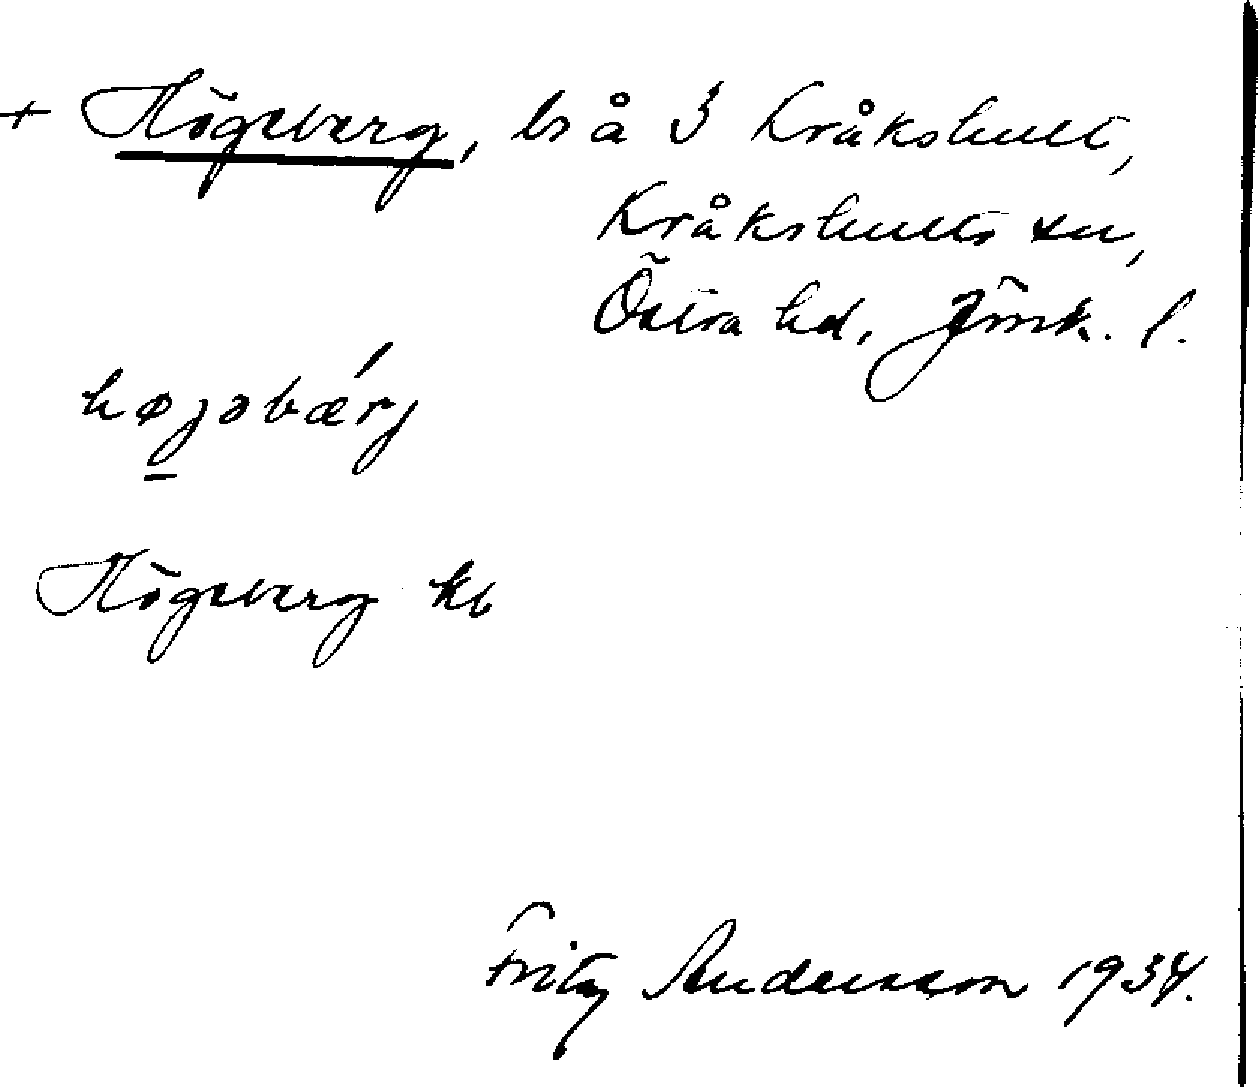 + Högeberg, ls å 3 Kråkshult,
Kråkshults sn,
Östra hd, Jönk. l.
højəbærj
Högeberg kb
Fritz Andersson 1934.